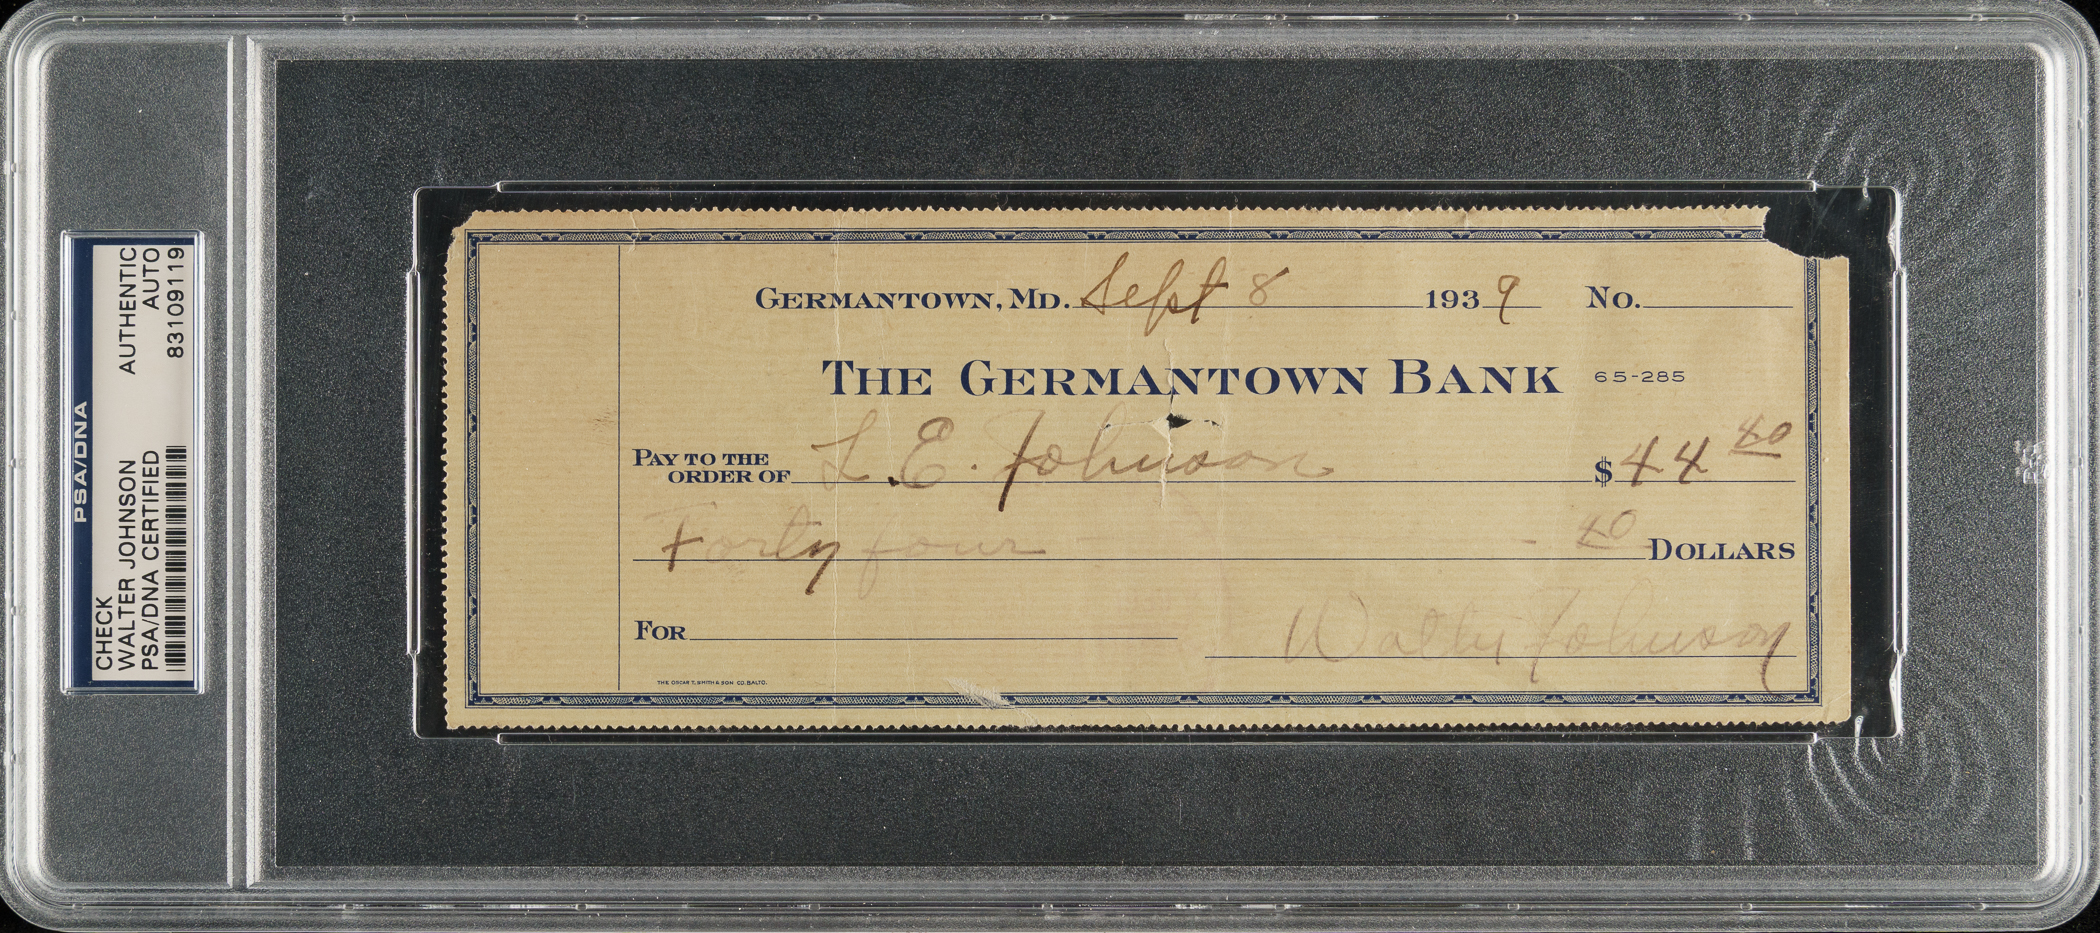 PSA/DNA
CHECK AUTHENTIC
WALTER JOHNSON AUTO
PSA/DNA CERTIFIED 83109119
GERMANTOWN, MD. Sept 8 1939 No.
THE GERMANTOWN BANK 65-285
PAY TO THE ORDER OF L. E. Johnson $44 40
Forty four - 40 DOLLARS
FOR
Walter Johnson
THE OSCAR T. SMITH & SON CO. BALTO.